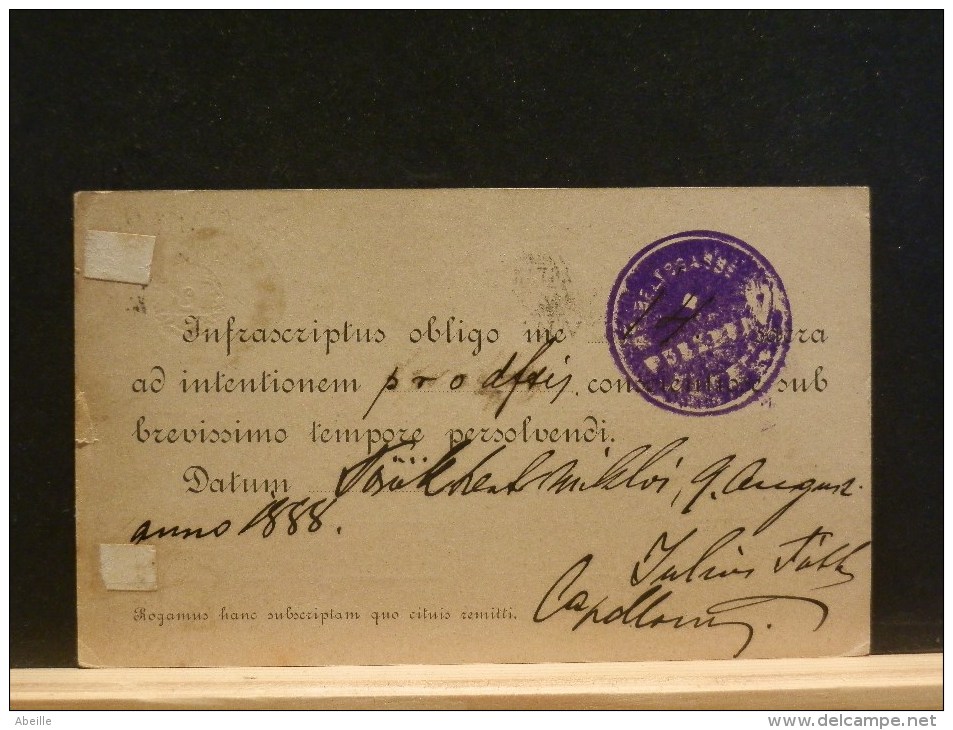 Infrascriptus obligo me 14 sacra
ad intentionem pro dftis consvenientiore sub
brevissimo tempore persolvendi.
Datum Törökszent Miklós, 9. August.
anno 1888.
Julius Tóth
Capellanus.
Rogamus hanc subscriptam quo cituis remitti.
Abeille
www.delcampe.net